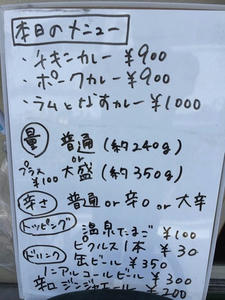 本日のメニュー
・チキンカレー ¥900
・ポークカレー ¥900
・ラムとなすカレー ¥1000
量 普通(約240g)
or
プラス¥100 大盛(約350g)
辛さ 普通 or 辛口 or 大辛
トッピング
温泉たまご ¥100
ピクルス1本 ¥30
ドリンク 缶ビール ¥350
ノンアルコールビール ¥300
辛口ジンジャエール ¥200